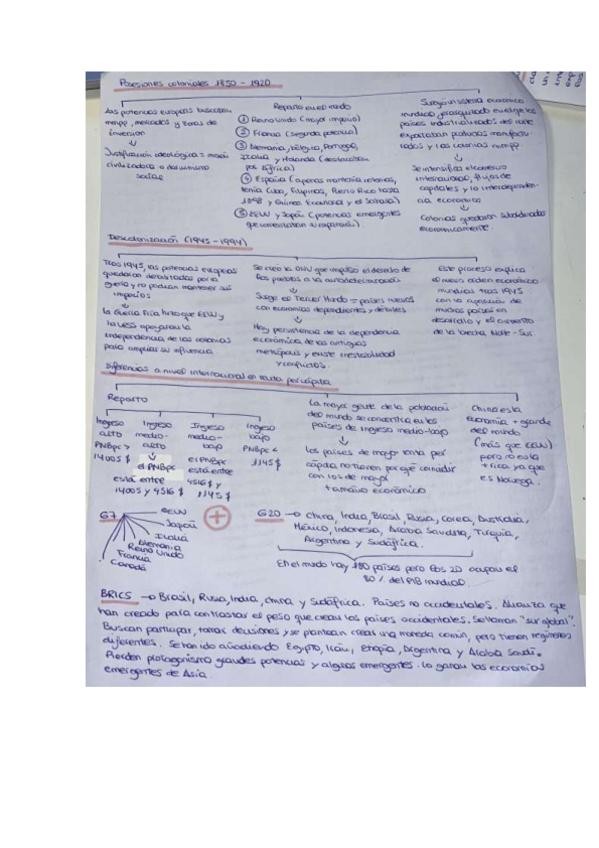 Posesiones coloniales 1850 - 1920
Las potencias europeas buscaban
mmpp, mercados y zonas de
inversión
↓
Justificación ideológica = misión
civilizadora o darwinismo
social
Reparto en el mundo
① Reino Unido (mayor imperio)
② Francia (segunda potencia)
③ Alemania, Bélgica, Portugal,
Italia y Holanda (destacaban
por África)
④ España (apenas mantenía colonias,
tenía Cuba, Filipinas, Puerto Rico hasta
1898 y Guinea Ecuatorial y el Sáhara)
⑤ EEUU y Japón (potencias emergentes
que comenzaban su expansión).
Surgió un sistema económico
mundial jerarquizado en el que los
países industrializados del norte
exportaban productos manufactu-
rados y las colonias mmpp.
↓
Se intensifica el comercio
internacional, flujos de
capitales y la interdependen-
cia económica
↓
Colonias quedaron subordinadas
económicamente.
Descolonización (1945 - 1994)
Tras 1945, las potencias europeas
quedaron debilitadas por la
guerra y no podían mantener sus
imperios
↓
La Guerra Fría hizo que EEUU y
la URSS apoyaran la
independencia de las colonias
para ampliar su influencia
Se creó la ONU que impulsó el derecho de
los pueblos a la autodeterminación
↓
Surge el Tercer Mundo = países nuevos
con economías dependientes y débiles
↓
Hay persistencia de la dependencia
económica de las antiguas
metrópolis y existe inestabilidad
y conflictos.
Este proceso explica
el nuevo orden económico
mundial tras 1945
con la aparición de
muchos países en
desarrollo y el aumento
de la brecha Norte - Sur.
Diferencias a nivel internacional en renta per cápita
Reparto
Ingreso
alto
PNBpc >
14005 $
Ingreso
medio-
alto
↓
el PNBpc
está entre
14005 y 4516 $
Ingreso
medio-
bajo
el PNBpc
está entre
4516 $ y
1145 $
Ingreso
bajo
PNBpc <
1145 $
La mayor parte de la población
del mundo se concentra en los
países de ingreso medio-bajo
↓
Los países de mayor renta per
cápita no tienen por qué coincidir
con los de mayor
tamaño económico
China es la
economía + grande
del mundo
(más que EEUU)
pero no es la
+ rica ya que
es Noruega.
G7
EEUU
Japón
Italia
Alemania
Reino Unido
Francia
Canadá
+
G20 → China, India, Brasil, Rusia, Corea, Australia,
México, Indonesia, Arabia Saudita, Turquía,
Argentina y Sudáfrica.
En el mundo hay 180 países pero los 20 ocupan el
80 % del PIB mundial.
BRICS → Brasil, Rusia, India, China y Sudáfrica. Países no occidentales. Alianza que
han creado para contrastar el peso que crean los países occidentales. Se llaman "sur global".
Buscan participar, tomar decisiones y se plantean crear una moneda común, pero tienen regímenes
diferentes. Se han ido añadiendo Egipto, Irán, Etiopía, Argentina y Arabia Saudí.
Pierden protagonismo grandes potencias y algunas emergentes. Lo ganan las economías
emergentes de Asia.